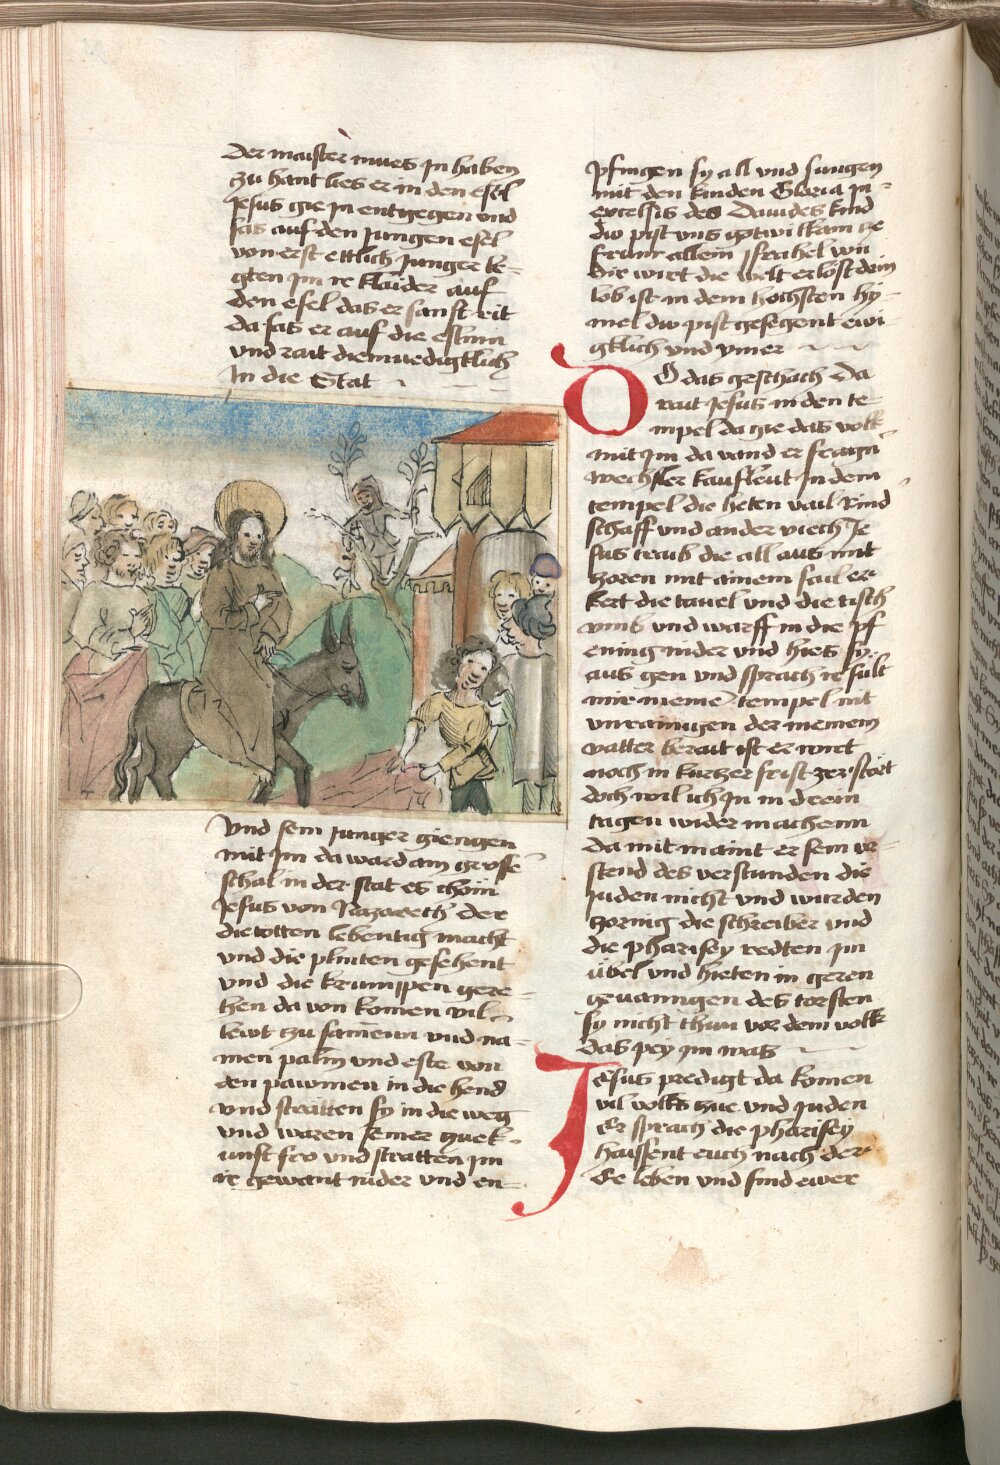 Der maister mues in haben
zu hant lies er in den esel
Jesus gie in entgegen und
sas auf den jungen esel
von erst ettlich junger le=
gten im re klaider auf
den esel das er sanft reit
da sas er auf die eslinn
und rait diemuedigklich
in die Stat
Und sein junger giengen
mit im da ward am grosse
schal in der stat es chom
Jesus von Nazareth der
die totten lebentig macht
und die plinten gesehent
und die krumppen gere=
hen da von komen vil
lewt zu samenn und na=
men palm und este von
den pawmen in die hend
und strätten sy in die weg
und waren seiner zuek=
unft fro und stratten im
ir gewant nider und en=
pfingen sy all und sungen
mit den kinden Gloria in=
excelsis des Dauides kind
du pist uns gotwilkam
allem Israhel von
dir wirt die welt erlost dein
lob ist in dem hochsten hy=
mel du pist gesegent ewi
gklich und ymer
Do das geschach da
rait Jesus in den te=
mpel da gie das volk
mit im da vand er
wechsler kaufleut in dem
tempel die heten vail Rind
schaff und ander viech Je
sus traib die all aus mit
zoren mit ainem sail er
kert die tauel und die tisch
umb und warff in die pf
ening nider und hies sy
aus gen und sprach ir sult
mir meine tempel nit
unrainigen der meinem
vatter berait ist er wirt
noch in kurtzer frist zerstört
doch wil ich in in drein
tagen wider machenn
da mit maint er sein ur=
stend des verstunden die
juden nicht und wurden
zornig die schreiber und
die pharisey redten im
übel und hieten in geren
geuanngen des torsten
sy nicht thun vor dem volk
das pey im was
Jesus predigt da komen
vil volks zue und juden
Er sprach die pharisey
haissent euch nach der
Ee leben und sind ewer